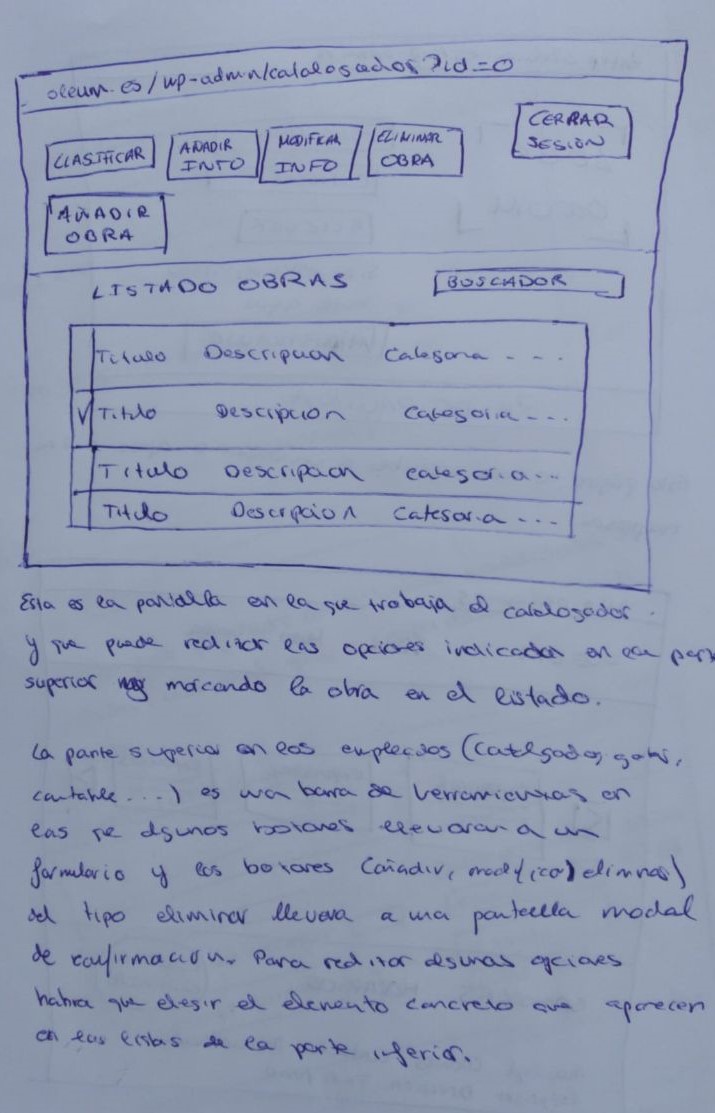 oleum.es/wp-admin/catalogador?id=0
CLASIFICAR AÑADIR INFO MODIFICAR INFO ELIMINAR OBRA CERRAR SESION
AÑADIR OBRA
LISTADO OBRAS BUSCADOR
Titulo Descripcion Categoria ...
✓ Titulo Descripcion Categoria ...
Titulo Descripcion categoria ...
Titulo Descripcion Categoria ...
Esta es la pantalla en la que trabaja el catalogador.
y que puede realizar las opciones indicadas en la parte
superior marcando la obra en el listado.
La parte superior en los empleados (catalogador, gestor,
contable ...) es una barra de herramientas en
las que algunos botones llevaran a un
formulario y los botones (añadir, modificar) eliminar)
del tipo eliminar llevara a una pantalla modal
de confirmacion. Para realizar algunas opciones
habra que elegir el elemento concreto que aparecen
en las listas de la parte inferior.